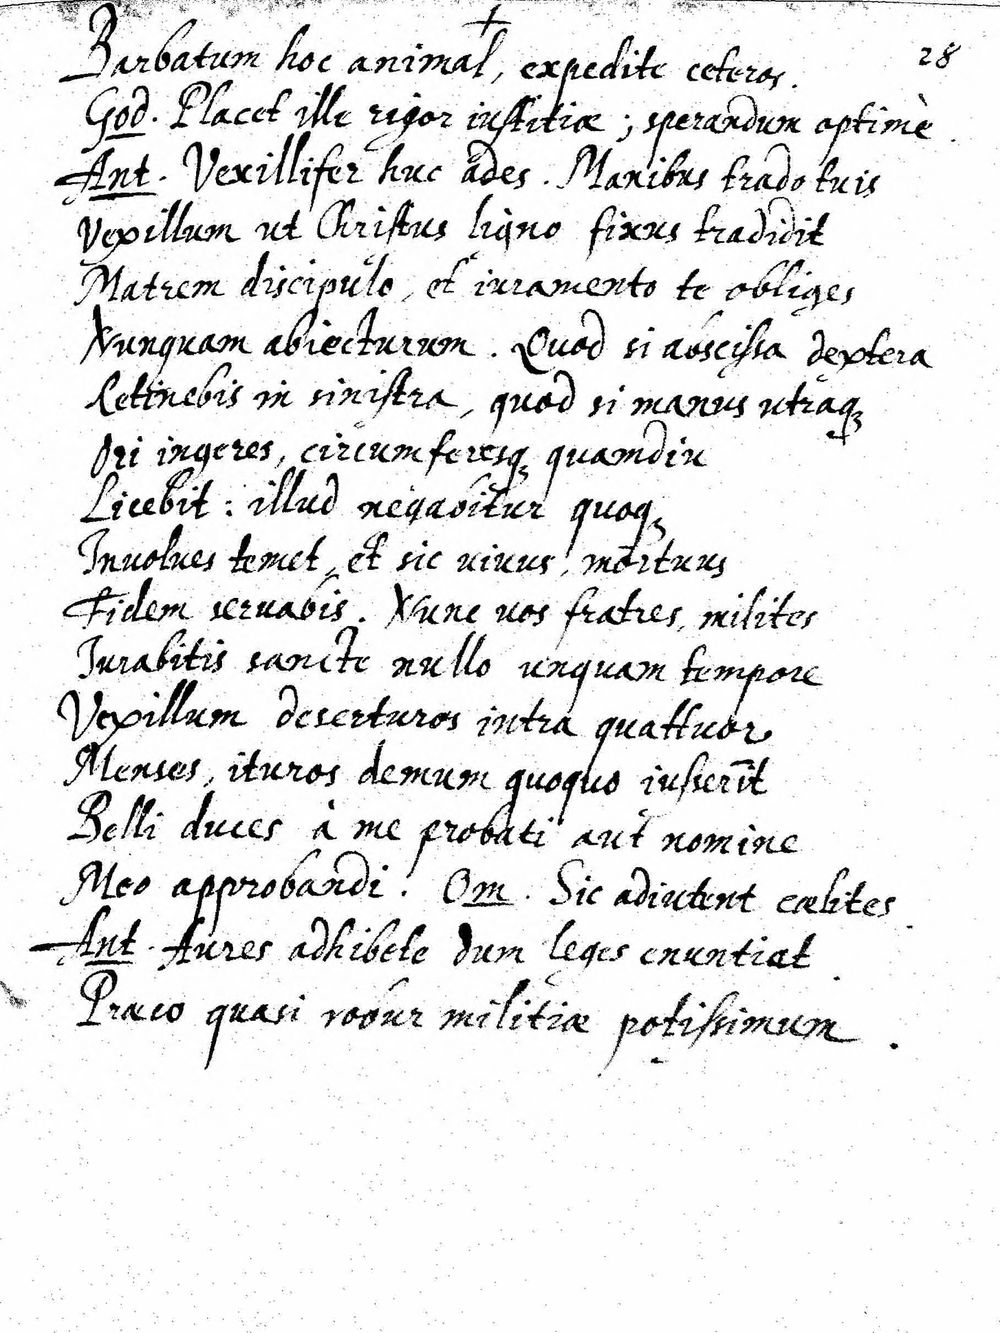 +
28
Barbatum hoc animal, expedite ceteros.
God. Placet ille rigor iustitiæ; sperandum optimè.
Ant. Vexillifer huc ades. Manibus trado tuis
Vexillum ut Christus ligno fixus tradidit
Matrem discipulo, et iuramento te obliges
Nunquam abiecturum. Quod si abscissa dextera
Retinebis in sinistra, quod si manus utraq;
Ori ingeres, circumferesq; quamdiu
Licebit: illud negabitur quoq;
Involues temet, et sic uiuus, mortuus
Fidem seruabis. Nunc uos fratres, milites
Iurabitis sancte nullo unquam tempore
Vexillum deserturos intra quattuor
Menses, ituros demum quoquo iusserit̄
Belli duces à me probati aut nomine
Meo approbandi. Om. Sic adiutent cælites.
Ant. Aures adhibete dum leges enuntiat
Præco quasi robur militiæ potissimum.